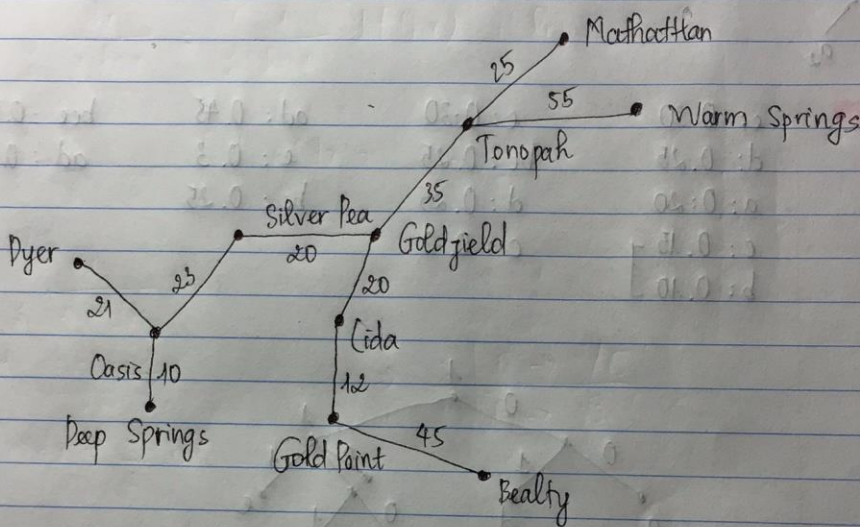 Mathattan
25
55
Warm Springs
Tonopah
35
Silver Pea
Goldfield
20
Dyer
23
20
21
Cida
Oasis
10
12
Deep Springs
45
Gold Point
Bealty